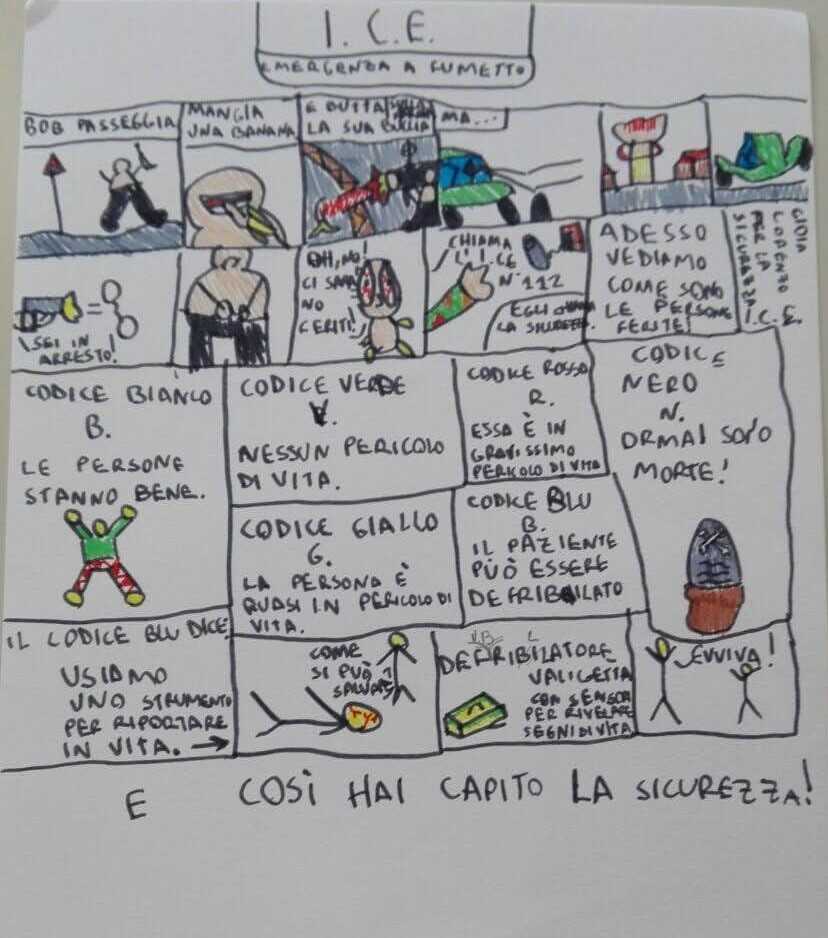 I. C. E.
EMERGENZA A FUMETTO
BOB PASSEGGIA
MANGIA
UNA BANANA
E BUTTA
LA SUA BUCCIA
MA...
SEI IN
ARRESTO!
OH, NO!
CI SONO
FERITI!
CHIAMA
L' I.C.E
N° 112
EGLI CHIAMA
LA SICUREZZA.
ADESSO
VEDIAMO
COME SONO
LE PERSONE
FERITE!
GIOIA
LORENZO
PER LA
SICUREZZA
I.C.E.
CODICE BIANCO
B.
LE PERSONE
STANNO BENE.
CODICE VERDE
V.
NESSUN PERICOLO
DI VITA.
CODICE ROSSO
R.
ESSA È IN
GRAVISSIMO
PERICOLO DI VITA
CODICE
NERO
N.
ORMAI SONO
MORTE!
CODICE GIALLO
G.
LA PERSONA È
QUASI IN PERICOLO DI
VITA.
CODICE BLU
B.
IL PAZIENTE
PUÒ ESSERE
DEFRIBILATO
IL CODICE BLU DICE:
USIAMO
UNO STRUMENTO
PER RIPORTARE
IN VITA. →
COME
SI PUÒ
SALVARE?
DEFRIBILATORE
VALIGETTA
CON SENSORI
PER RIVELARE
SEGNI DI VITA
EVVIVA!
E COSÌ HAI CAPITO LA SICUREZZA!